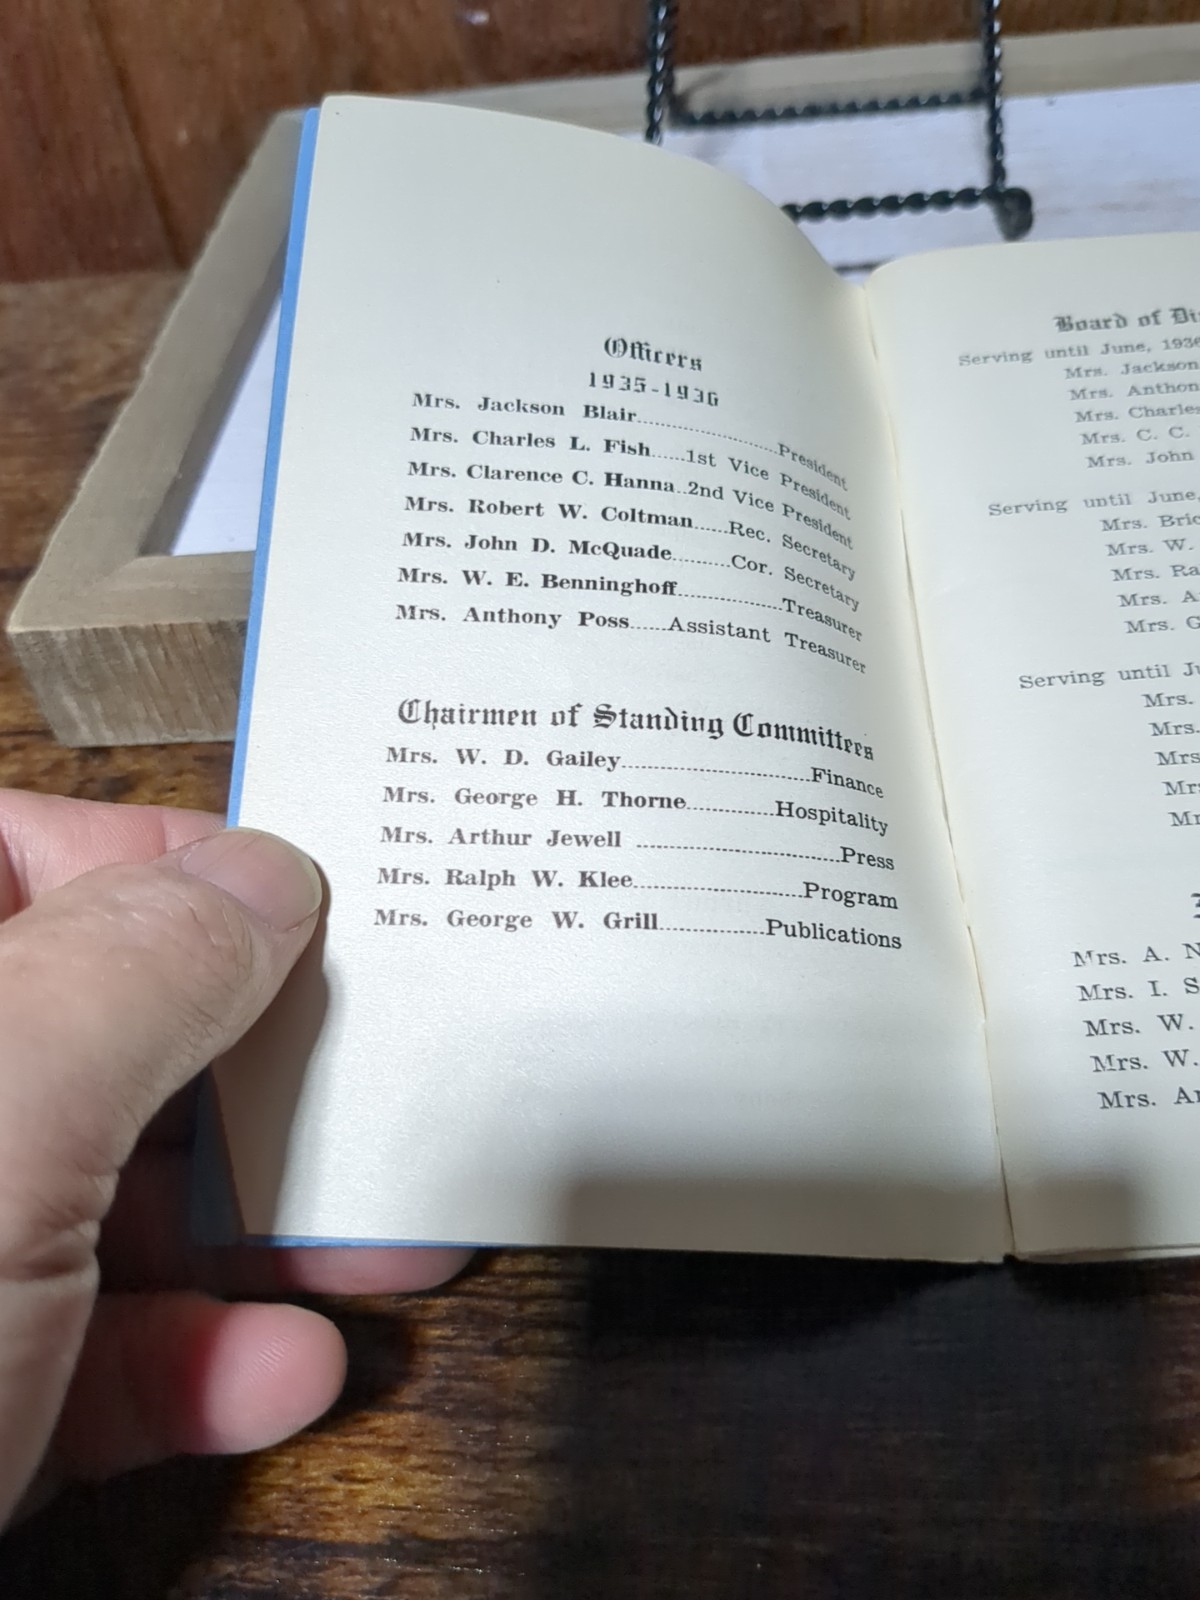 Officers
1935-1936
Mrs. Jackson Blair........................President
Mrs. Charles L. Fish......1st Vice President
Mrs. Clarence C. Hanna..2nd Vice President
Mrs. Robert W. Coltman......Rec. Secretary
Mrs. John D. McQuade..........Cor. Secretary
Mrs. W. E. Benninghoff..................Treasurer
Mrs. Anthony Poss......Assistant Treasurer
Chairmen of Standing Committees
Mrs. W. D. Gailey................................Finance
Mrs. George H. Thorne...............Hospitality
Mrs. Arthur Jewell ...................................Press
Mrs. Ralph W. Klee.............................Program
Mrs. George W. Grill..................Publications
Board of
Serving until June, 1936
Mrs. Jackson
Mrs.
Mrs. Charles
Mrs. C. C.
Mrs. John
Serving until June,
Mrs.
Mrs. W.
Mrs.
Mrs. A
Mrs. G
Serving until
Mrs.
Mrs.
Mrs
Mrs. A. N
Mrs. I. S
Mrs. W.
Mrs. W.
Mrs.